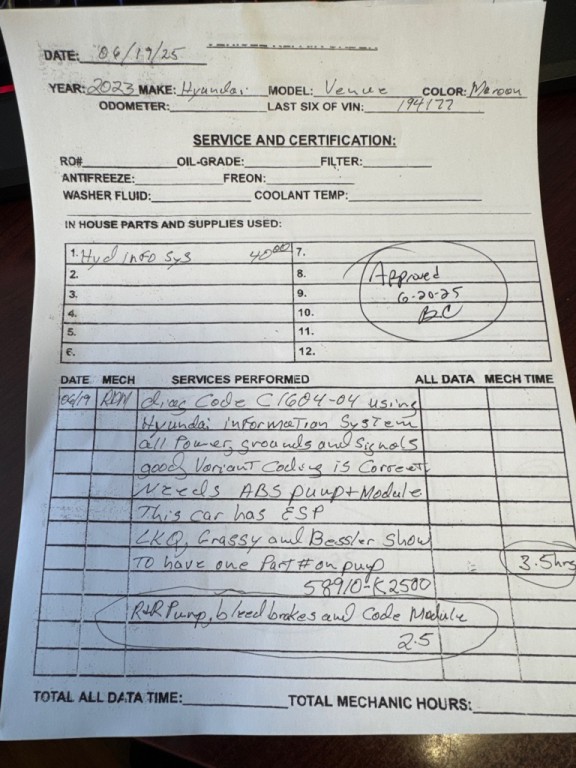 DATE: 06/19/25
YEAR: 2023 MAKE: Hyundai MODEL: Venue COLOR: Maroon
ODOMETER: LAST SIX OF VIN: 194177
SERVICE AND CERTIFICATION:
RO# OIL-GRADE: FILTER:
ANTIFREEZE: FREON:
WASHER FLUID: COOLANT TEMP:
IN HOUSE PARTS AND SUPPLIES USED:
1. Hyd info sys 40.00 7.
2. 8. Approved
3. 9. 6-20-25
4. 10. BC
5. 11.
6. 12.
DATE MECH SERVICES PERFORMED ALL DATA MECH TIME
06/19 RDM diag Code C1604-04 using
Hyundai Information System
all Power, grounds and Signals
good, Variant Coding is Correct,
Needs ABS pump + Module
This car has ESP
LKQ, Grassy and Bessler show
To have one Part # on pump 3.5 hrs
58910-K2500
R+R Pump, bleed brakes and Code Module
2.5
TOTAL ALL DATA TIME: TOTAL MECHANIC HOURS: